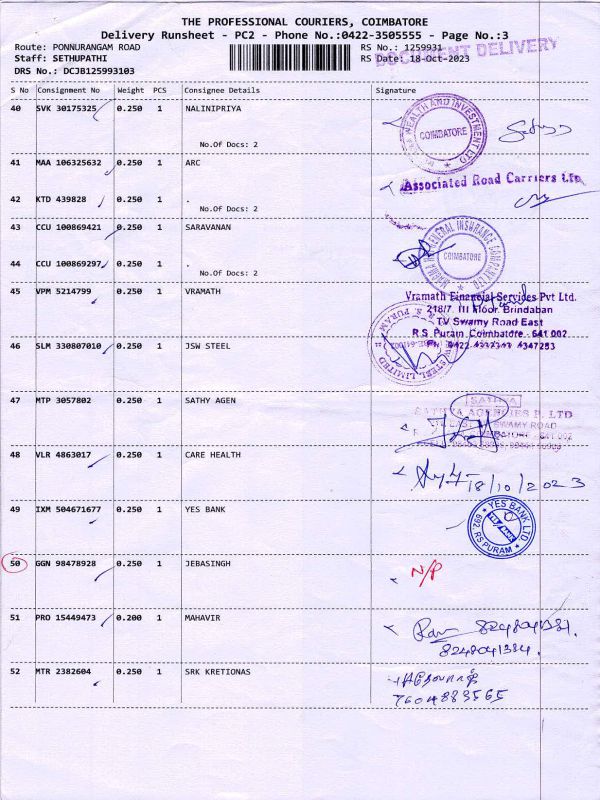 THE PROFESSIONAL COURIERS, COIMBATORE
Delivery Runsheet - PC2 - Phone No.:0422-3505555 - Page No.:3
Route: PONNURANGAM ROAD
RS No.: 1259931
DOCUMENT DELIVERY
Staff: SETHUPATHI
RS Date: 18-Oct-2023
DRS No.: DCJB125993103
S No Consignment No Weight PCS Consignee Details Signature
40 SVK 30175325 0.250 1 NALINIPRIYA
HEALTH AND INVESTMENT LTD
COIMBATORE
No.Of Docs: 2
41 MAA 106325632 0.250 1 ARC
Associated Road Carriers Ltd.
42 KTD 439828 0.250 1 .
No.Of Docs: 2
43 CCU 100869421 0.250 1 SARAVANAN
GENERAL INSURANCE
COIMBATORE
44 CCU 100869297 0.250 1 .
No.Of Docs: 2
45 VPM 5214799 0.250 1 VRAMATH
Vramath Financial Services Pvt Ltd.
218/7. III Floor. Brindaban
TV Swamy Road East
R.S Puram Coimbatore - 641 002
4347253
46 SLM 330807010 0.250 1 JSW STEEL
STEEL LIMITED
R.S. PURAM
47 MTP 3057802 0.250 1 SATHY AGEN
SATHYA
SATHYA AGENCIES P. LTD
SWAMY ROAD
641 002
48 VLR 4863017 0.250 1 CARE HEALTH
18/10/2023
49 IXM 504671677 0.250 1 YES BANK
YES BANK LTD.
692, RS PURAM
50 GGN 98478928 0.250 1 JEBASINGH
N/P
51 PRO 15449473 0.200 1 MAHAVIR
8248041384.
52 MTR 2382604 0.250 1 SRK KRETIONAS
7604883565